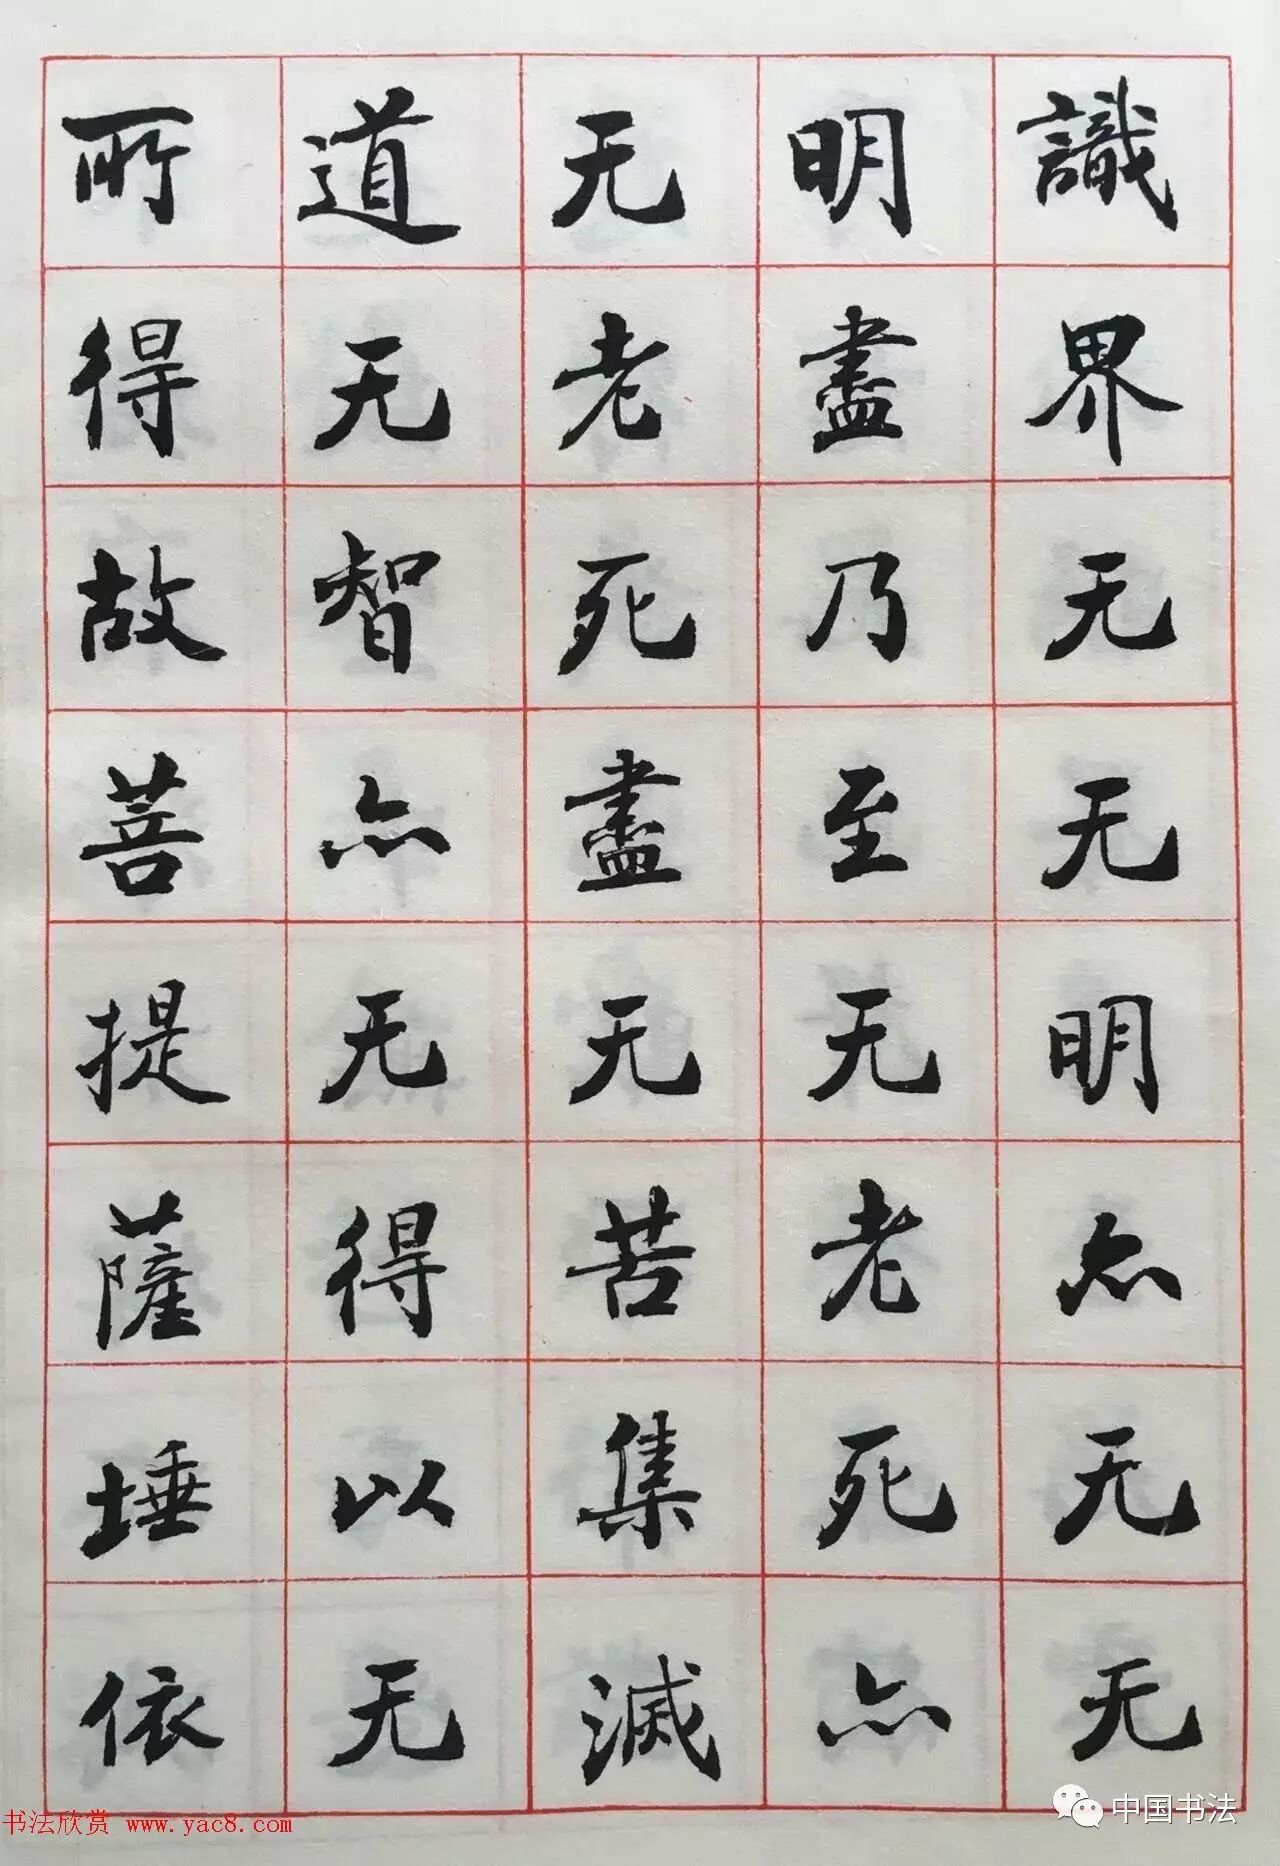 識界无无明亦无无
明盡乃至无老死亦
无老死盡无苦集滅
道无智亦无得以无
所得故菩提薩埵依
书法欣赏 www.yac8.com
中国书法